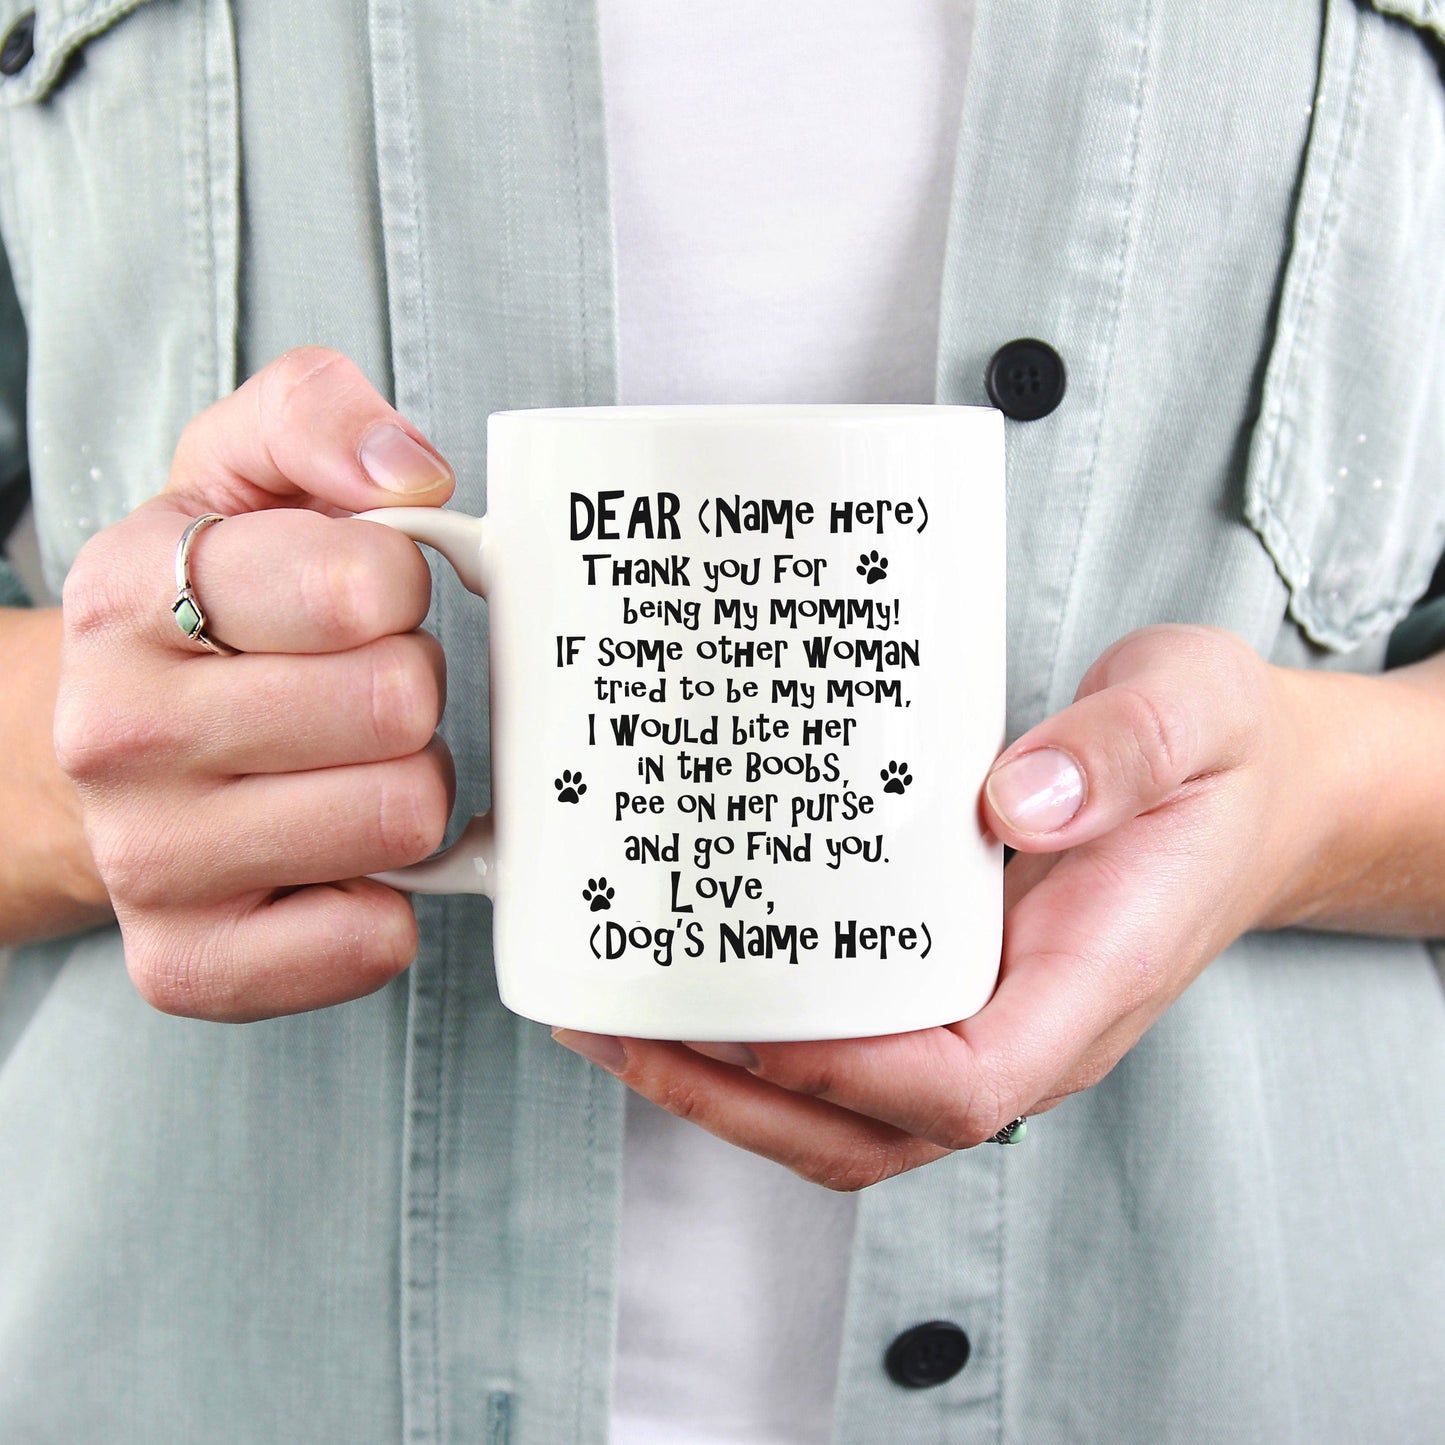 DEAR (Name Here)
Thank you for
being my mommy!
If some other woman
tried to be my mom,
I would bite her
in the boobs,
pee on her purse
and go find you.
Love,
(Dog's Name Here)